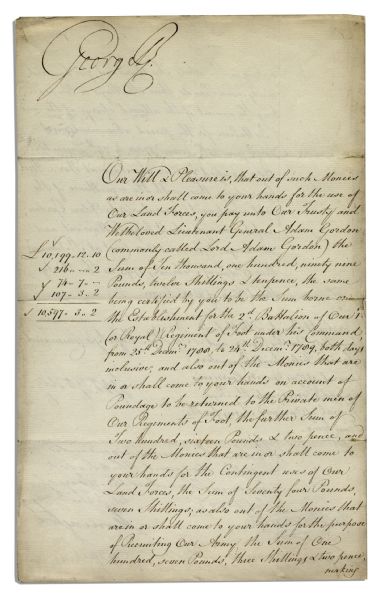 George R.
Our Will & Pleasure is, that out of such Monies
as are in or shall come to your hands for the use of
Our Land Forces, you pay unto Our Trusty and
Welbeloved Lieutenant General Adam Gordon
(commonly called Lord Adam Gordon) the
Sum of Ten thousand, one hundred, ninety nine
Pounds, twelve Shillings & tenpence, the same
being certified by you to be the Sum borne on
the Establishment for the 2d. Battalion of Our 1st.
(or Royal) Regiment of Foot under his Command
from 25th. Decemr. 1788, to 24th. Decemr. 1789, both days
inclusive, and also out of the Monies that are
in or shall come to your hands on account of
Poundage to be returned to the Private men of
Our Regiments of Foot, the further Sum of
Two hundred, sixteen Pounds & two pence, and
out of the Monies that are in or shall come to
your hands for the Contingent uses of Our
Land Forces the Sum of Seventy four Pounds,
seven Shillings; as also out of the Monies that
are in or shall come to your hands for the purpose
of Recruiting Our Army the Sum of One
hundred, seven Pounds, three Shillings & two pence,
making
£10,199.12.10
216..—..2
74..7..—
107..3..2
10,597..3..2